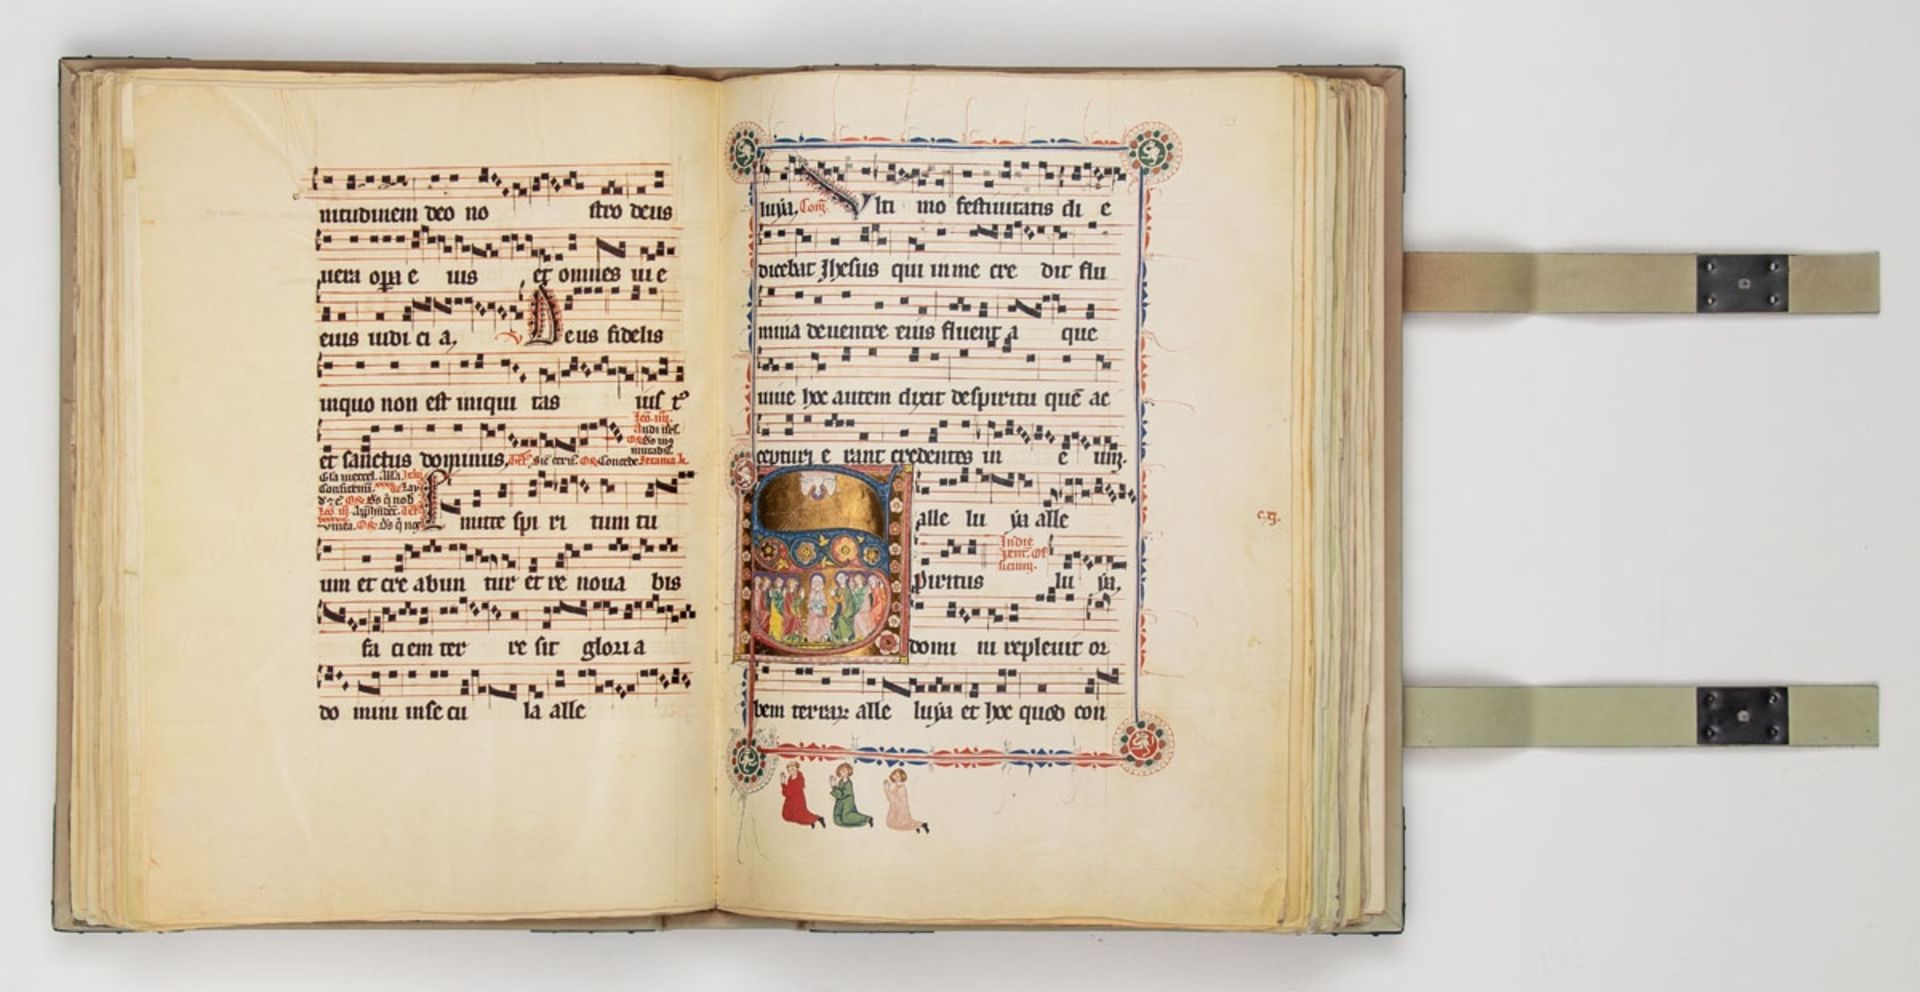 nitudinem deo no stro deus
uera opa e ius et omnes ui e
eius iudi ci a, V Deus fidelis
inquo non est iniqui tas ius t⁹
et sanctus dominus,
Emitte spi ri tum tu
um et cre abun tur et re noua bis
fa ciem ter re sit glori a
do mini inse cu la alle
luya. Com̄. Vlti mo festiuitatis di e
dicebat Jhesus qui in me cre dit flu
mina de uentre eius fluent a que
uiue hoc autem dixit de spiritu quē ac
cepturi e rant credentes in e um.
alle lu ya alle
Spiritus lu ya,
domi ni repleuit or
bem terrarꝝ alle luya et hoc quod con